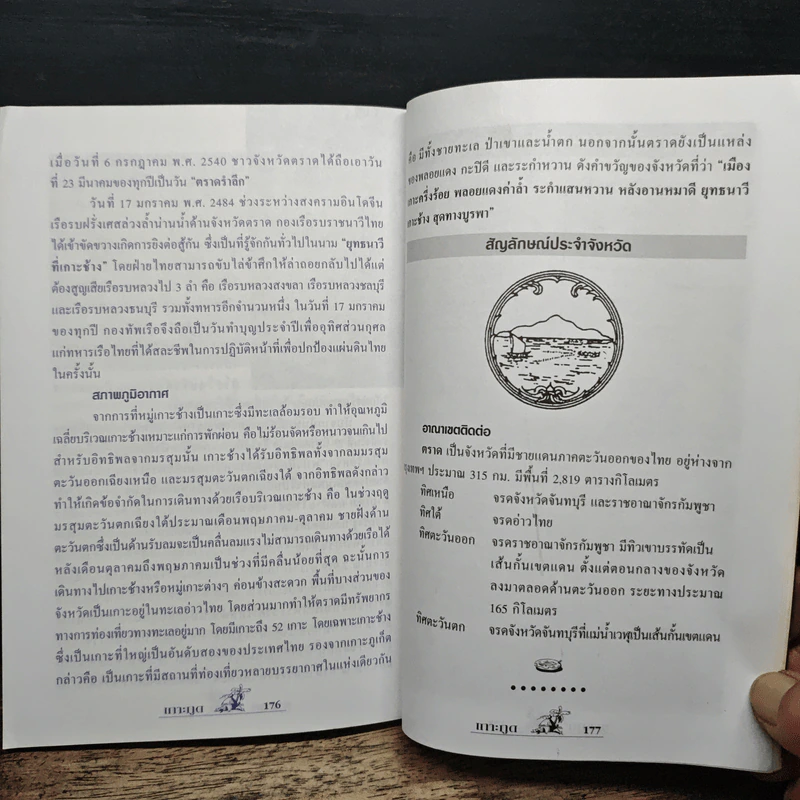 เมื่อวันที่ 6 กรกฎาคม พ.ศ. 2540 ชาวจังหวัดตราดได้ถือเอาวัน
ที่ 23 มีนาคมของทุกปีเป็นวัน "ตราดรำลึก"
วันที่ 17 มกราคม พ.ศ. 2484 ช่วงระหว่างสงครามอินโดจีน
เรือรบฝรั่งเศสล่วงล้ำน่านน้ำด้านจังหวัดตราด กองเรือรบราชนาวีไทย
ได้เข้าขัดขวางเกิดการยิงต่อสู้กัน ซึ่งเป็นที่รู้จักกันทั่วไปในนาม "ยุทธนาวี
ที่เกาะช้าง" โดยฝ่ายไทยสามารถขับไล่ข้าศึกให้ล่าถอยกลับไปได้แต่
ต้องสูญเสียเรือรบหลวงไป 3 ลำ คือ เรือรบหลวงสงขลา เรือรบหลวงชลบุรี
และเรือรบหลวงธนบุรี รวมทั้งทหารอีกจำนวนหนึ่ง ในวันที่ 17 มกราคม
ของทุกปี กองทัพเรือจึงถือเป็นวันทำบุญประจำปีเพื่ออุทิศส่วนกุศล
แก่ทหารเรือไทยที่ได้สละชีพในการปฏิบัติหน้าที่เพื่อปกป้องแผ่นดินไทย
ในครั้งนั้น
สภาพภูมิอากาศ
จากการที่หมู่เกาะช้างเป็นเกาะซึ่งมีทะเลล้อมรอบ ทำให้อุณหภูมิ
เฉลี่ยบริเวณเกาะช้างเหมาะแก่การพักผ่อน คือไม่ร้อนจัดหรือหนาวจนเกินไป
สำหรับอิทธิพลจากมรสุมนั้น เกาะช้างได้รับอิทธิพลทั้งจากลมมรสุม
ตะวันออกเฉียงเหนือ และมรสุมตะวันตกเฉียงใต้ จากอิทธิพลดังกล่าว
ทำให้เกิดข้อจำกัดในการเดินทางด้วยเรือบริเวณเกาะช้าง คือ ในช่วงฤดู
มรสุมตะวันตกเฉียงใต้ประมาณเดือนพฤษภาคม-ตุลาคม ชายฝั่งด้าน
ตะวันตกซึ่งเป็นด้านรับลมจะเป็นคลื่นลมแรงไม่สามารถเดินทางด้วยเรือได้
หลังเดือนตุลาคมถึงพฤษภาคมเป็นช่วงที่มีคลื่นน้อยที่สุด ฉะนั้นการ
เดินทางไปเกาะช้างหรือหมู่เกาะต่างๆ ค่อนข้างสะดวก พื้นที่บางส่วนของ
จังหวัดเป็นเกาะอยู่ในทะเลอ่าวไทย โดยส่วนมากทำให้ตราดมีทรัพยากร
ทางการท่องเที่ยวทางทะเลอยู่มาก โดยมีเกาะถึง 52 เกาะ โดยเฉพาะเกาะช้าง
ซึ่งเป็นเกาะที่ใหญ่เป็นอันดับสองของประเทศไทย รองจากเกาะภูเก็ต
กล่าวคือ เป็นเกาะที่มีสถานที่ท่องเที่ยวหลายบรรยากาศในแห่งเดียวกัน
เกาะกูด 176
คือ มีทั้งชายทะเล ป่าเขาและน้ำตก นอกจากนั้นตราดยังเป็นแหล่ง
ของพลอยแดง กะปิดี และระกำหวาน ดังคำขวัญของจังหวัดที่ว่า "เมือง
เกาะครึ่งร้อย พลอยแดงค่าล้ำ ระกำแสนหวาน หลังอานหมาดี ยุทธนาวี
เกาะช้าง สุดทางบูรพา"
สัญลักษณ์ประจำจังหวัด
อาณาเขตติดต่อ
ตราด เป็นจังหวัดที่มีชายแดนภาคตะวันออกของไทย อยู่ห่างจาก
กรุงเทพฯ ประมาณ 315 กม. มีพื้นที่ 2,819 ตารางกิโลเมตร
ทิศเหนือ จรดจังหวัดจันทบุรี และราชอาณาจักรกัมพูชา
ทิศใต้ จรดอ่าวไทย
ทิศตะวันออก จรดราชอาณาจักรกัมพูชา มีทิวเขาบรรทัดเป็น
เส้นกั้นเขตแดน ตั้งแต่ตอนกลางของจังหวัด
ลงมาตลอดด้านตะวันออก ระยะทางประมาณ
165 กิโลเมตร
ทิศตะวันตก จรดจังหวัดจันทบุรีที่แม่น้ำเวฬุเป็นเส้นกั้นเขตแดน
เกาะกูด 177